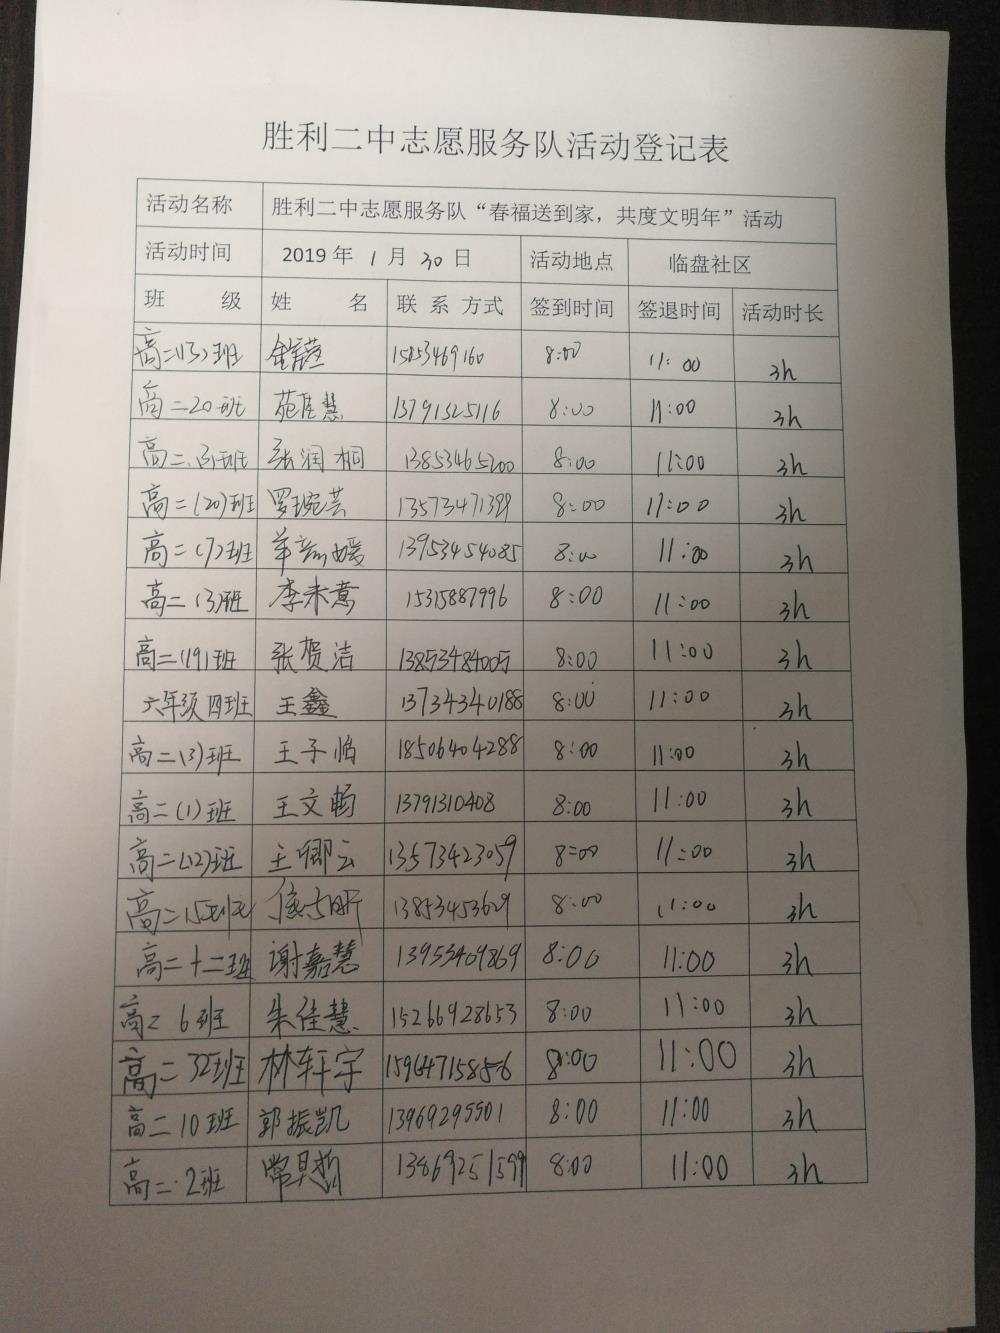 胜利二中志愿服务队活动登记表
活动名称 胜利二中志愿服务队“春福送到家，共度文明年”活动
活动时间 2019年1月30日 活动地点 临盘社区
班 级 姓 名 联系方式 签到时间 签退时间 活动时长
高二(13)班 15853469160 8:00 11:00 3h
高二20班 苑佳慧 13791325116 8:00 11:00 3h
高二 班 张润桐 13853465200 8:00 11:00 3h
高二(20)班 罗琬芸 13573471399 8:00 11:00 3h
高二(7)班 13953454085 8:00 11:00 3h
高二(3)班 李未薏 15315887996 8:00 11:00 3h
高二(19)班 张贺洁 13853484005 8:00 11:00 3h
六年级四班 王鑫 13734340188 8:00 11:00 3h
高二(3)班 王子怡 18506404288 8:00 11:00 3h
高二(1)班 王文畅 13791310408 8:00 11:00 3h
高二(12)班 王卿云 13573423059 8:00 11:00 3h
高二15班 13853453629 8:00 11:00 3h
高二十二班 谢嘉慧 13953409869 8:00 11:00 3h
高二6班 朱佳慧 15266928653 8:00 11:00 3h
高二32班 林轩宇 8:00 11:00 3h
高二10班 郭振凯 13969295501 8:00 11:00 3h
高二·2班 常昊哲 13869251599 8:00 11:00 3h